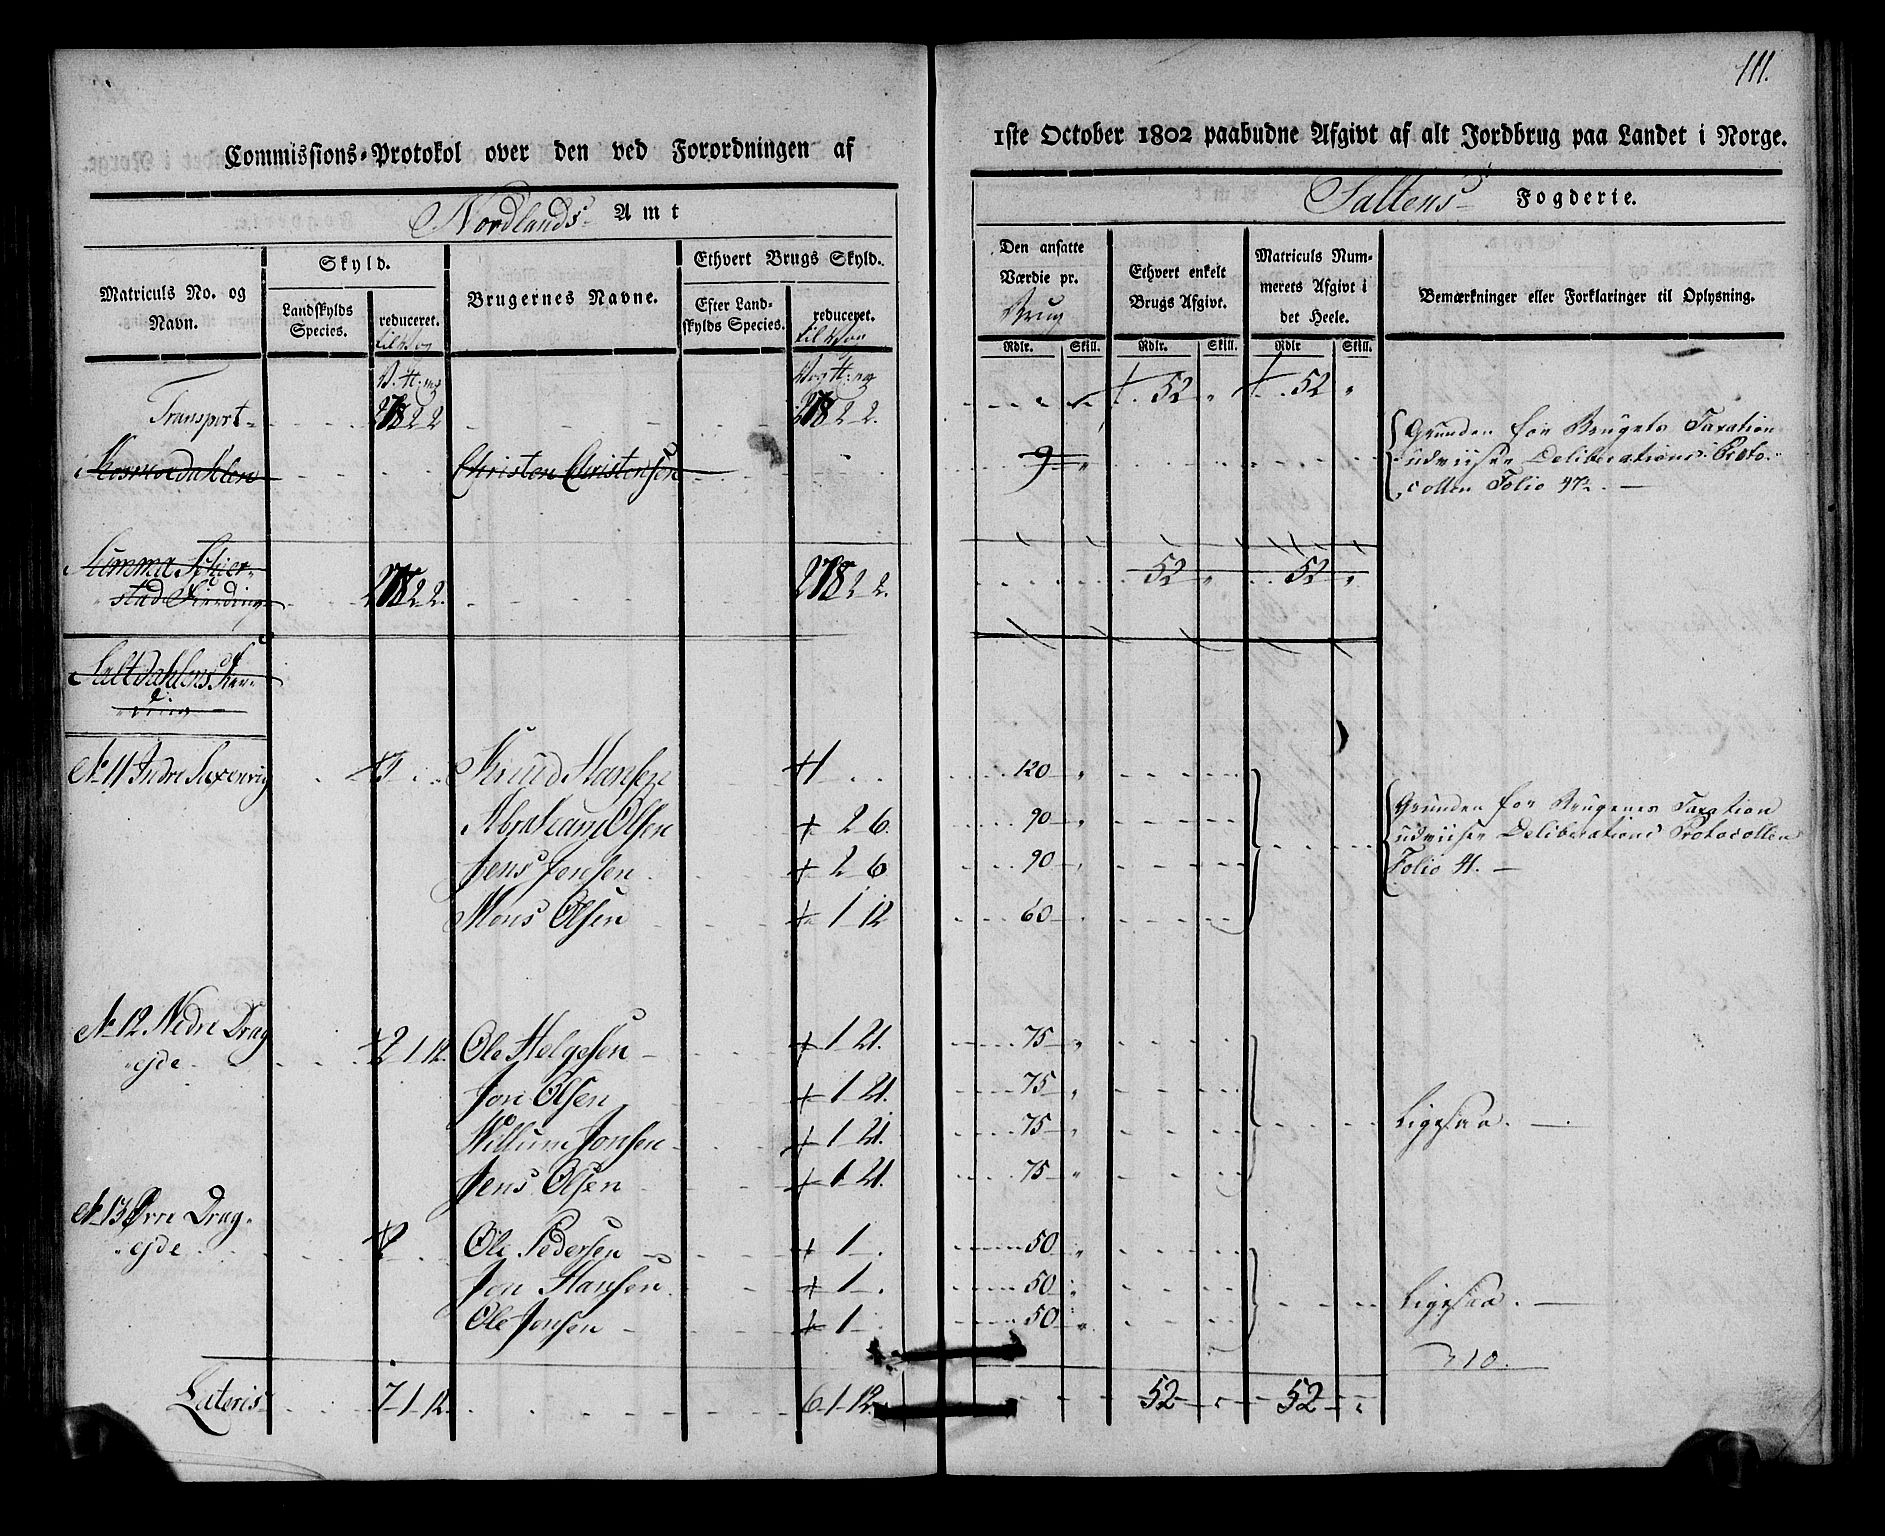 111.
Commissions-Protokol over den ved Forordningen af
1ste October 1802 paabudne Afgivt af alt Jordbrug paa Landet i Norge.
Nordlands Amt
Saltens Fogderie.
Matriculs No. og Navn.
Skyld.
Landskylds Species.
reduceret. til Vog
Brugernes Navne.
Ethvert Brugs Skyld.
Efter Landskylds Species.
reduceret. til Vog
Den ansatte Værdie pr. Brug
Ethvert enkelt Brugs Afgivt.
Matriculs Nummerets Afgivt i det Heele.
Bemærkninger eller Forklaringer til Oplysning.
Rdlr. Skill. Rdlr. Skill. Rdlr Skill.
Transport 52 52
Christen Christensen 9
Grunden for Brugets Taxation
udviiser Deliberations Proto-
collen Folio 47
Summa Schier-
stad Fierding 52 52
Saltdahlens Fier-
ding
No 11 Indre Saxenvig Knud Hansen 120
Abraham Olsen 2 6 90
Jens Jonsen 2 6 90
Mons Olsen 1 12 60
Grunden for Brugenes Taxation
udviiser Deliberations Protocollen
Folio 41.
No 12 Nedre Drag- 2 1 12 Ole Helgesen 1 21. 75
ejde
Jon Olsen 1 21. 75
Willum Jonsen 1 21. 75
Ligesaa.
Jens Olsen 1 21. 75
No 13 Øvre Drag-
ejde 2 Ole Pedersen 1 50
Jon Hansen 1 50
Ligesaa.
Ole Jonsen 1 50
10.
Lateris 7 1 12. 6 1 12. 52 52